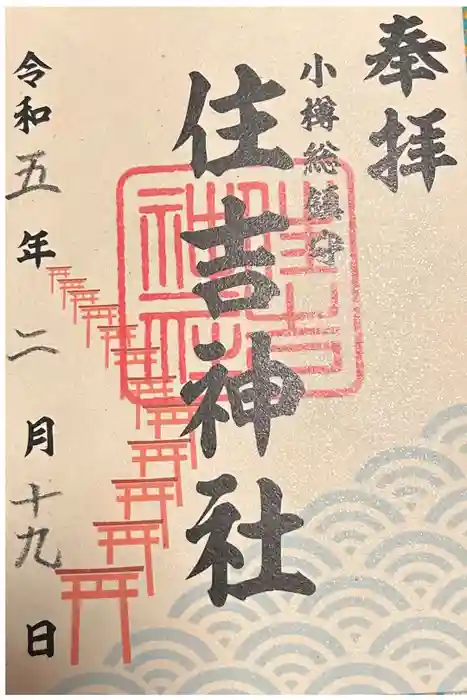 奉拝
小樽総鎮守
住吉神社
住吉
神社
令和五年二月十九日